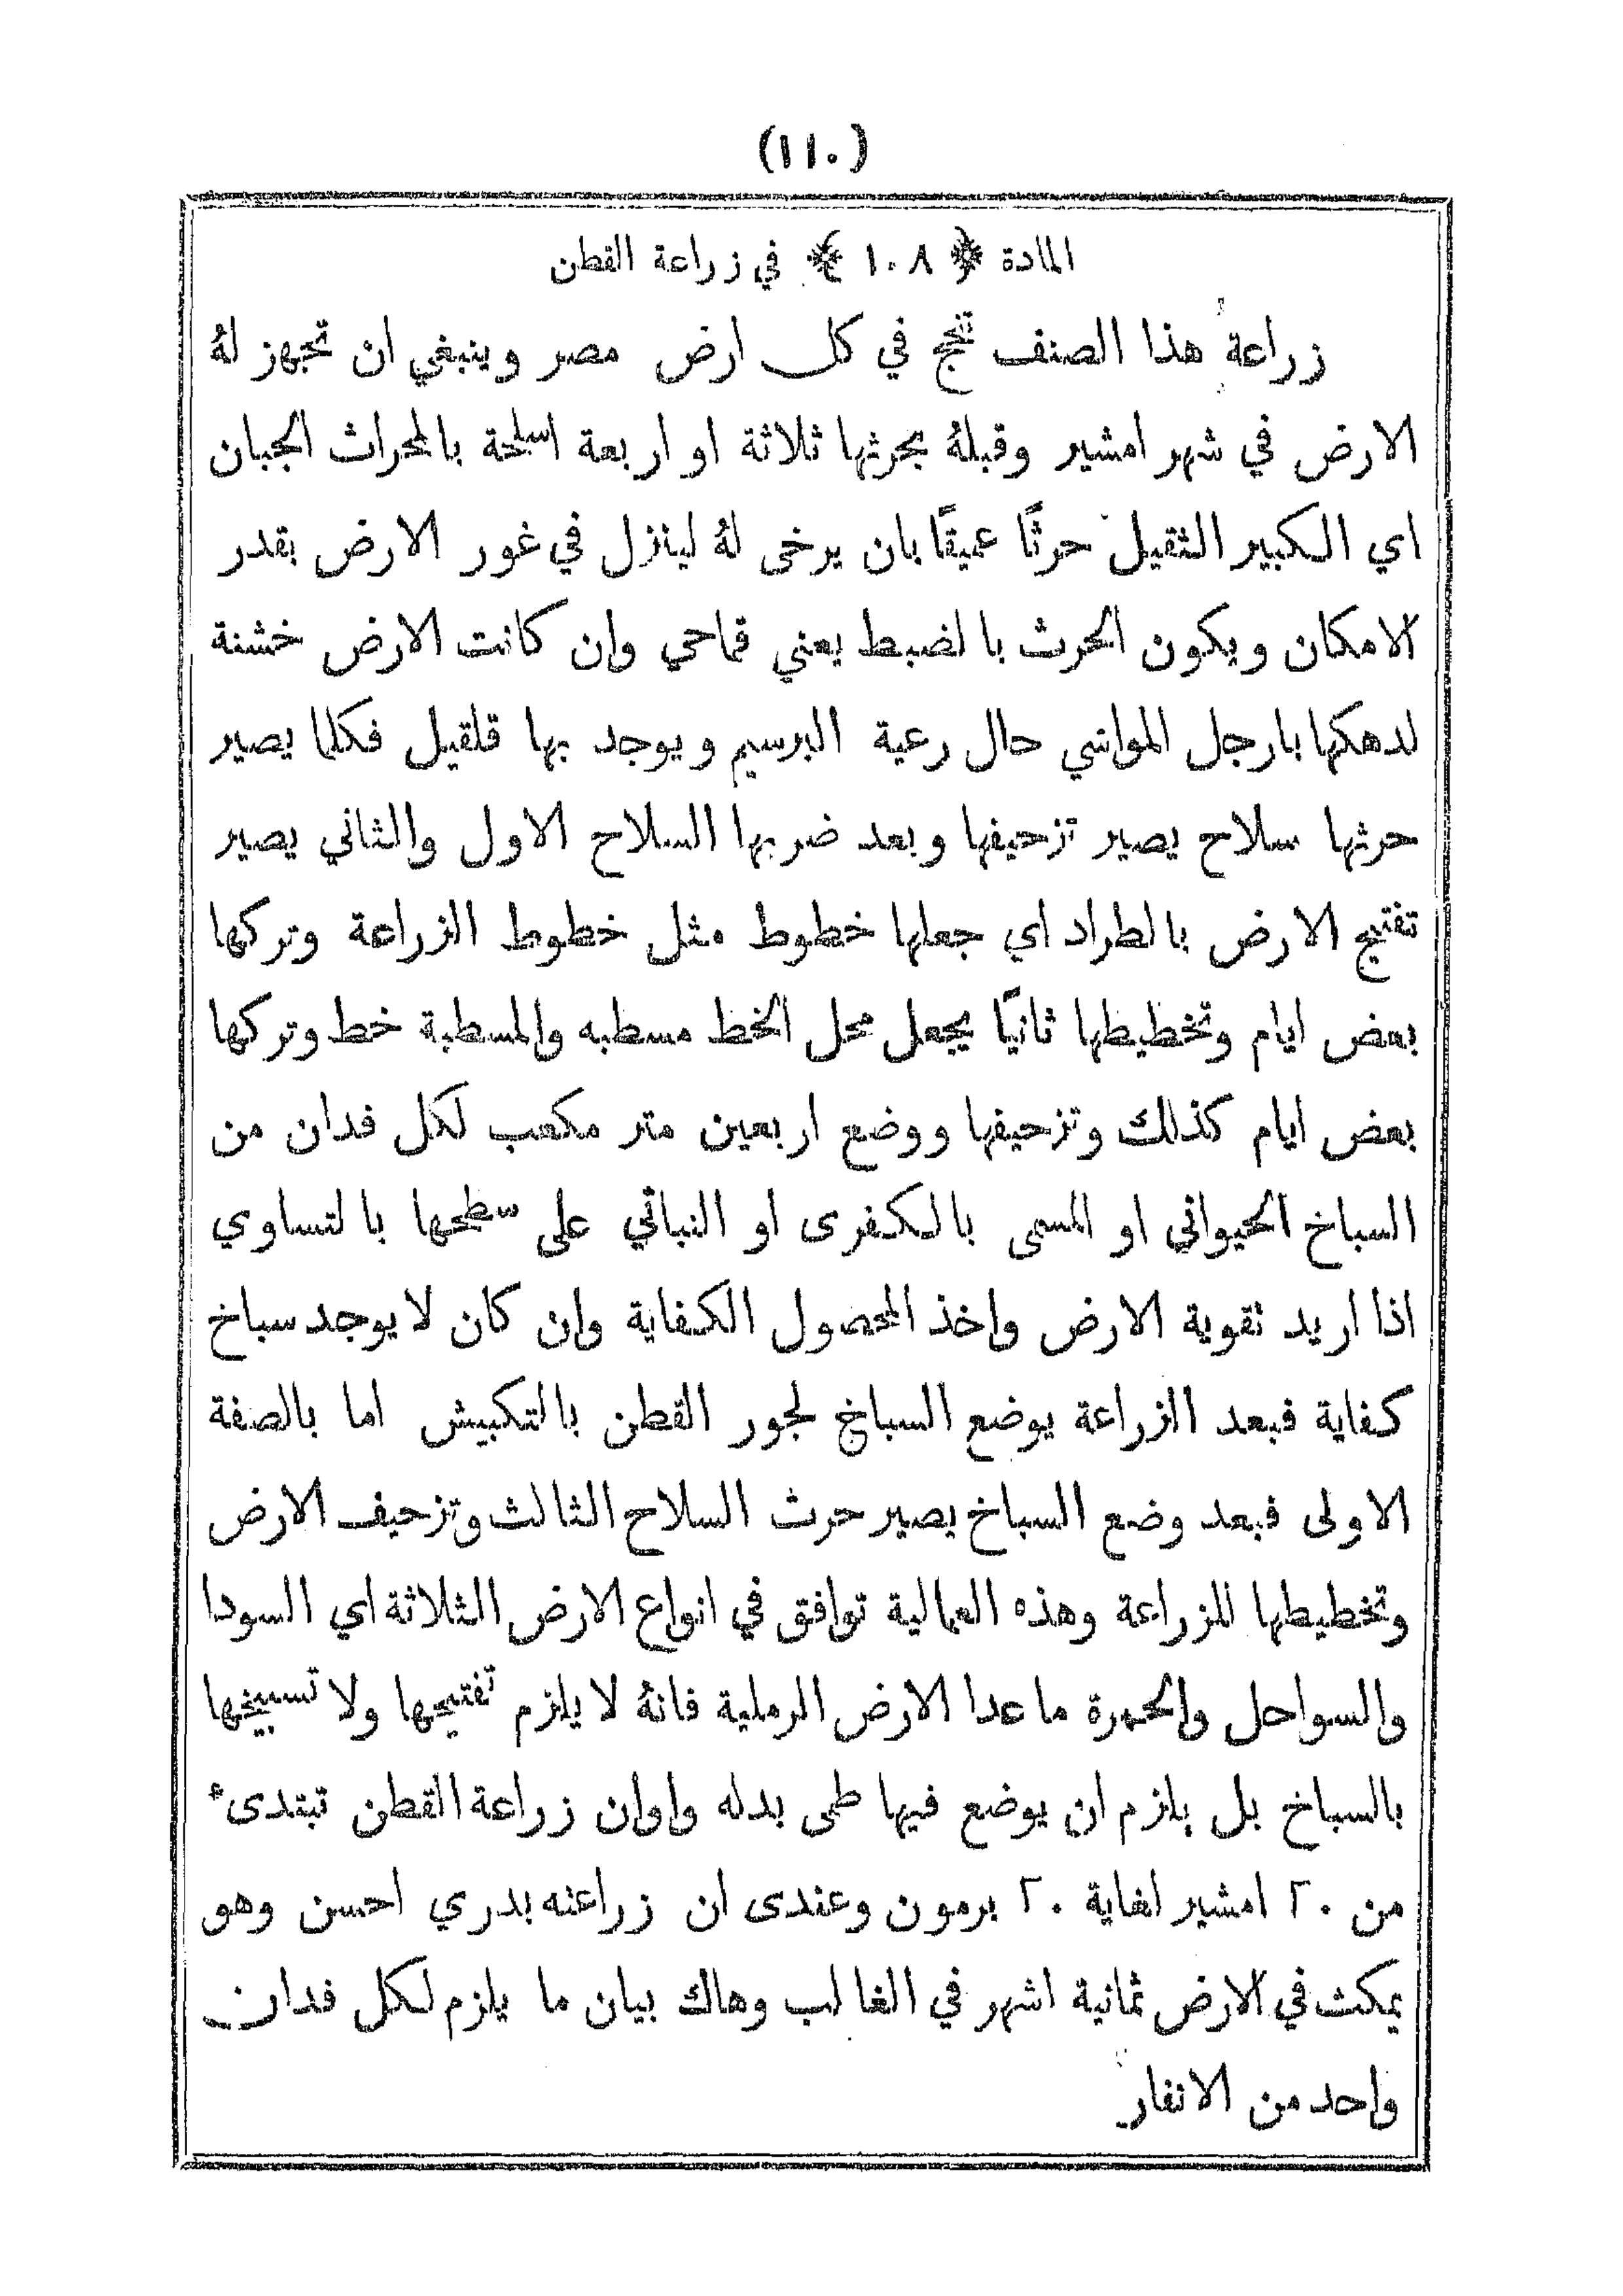 (١١٠)
المادة ﴿ ١٠٨ ﴾ في زراعة القطن
زراعة هذا الصنف تنجح في كل ارض مصر وينبغي ان تجهز لهُ
الارض في شهر امشير وقبلهُ بحرثها ثلاثة او اربعة اسلحة بالمحراث الجبان
اي الكبير الثقيل حرثًا عميقًا بان يرخى لهُ لينزل في غور الارض بقدر
الامكان ويكون الحرث بالضبط يعني قماحي وان كانت الارض خشنة
لدهكها بارجل المواشي حال رعية البرسيم ويوجد بها قلقيل فكلما يصير
حرثها سلاح يصير تزحيفها وبعد ضربها السلاح الاول والثاني يصير
تفتيح الارض بالطراد اي جعلها خطوط مثل خطوط الزراعة وتركها
بعض ايام وتخطيطها ثانيًا يجعل محل الخط مسطبه والمسطبة خط وتركها
بعض ايام كذلك وتزحيفها ووضع اربعين متر مكعب لكل فدان من
السباخ الحيواني او المسمى بالكفرى او النباتي على سطحها بالتساوي
اذا اريد تقوية الارض واخذ المحصول الكفاية وان كان لا يوجد سباخ
كفاية فبعد الزراعة يوضع السباخ لجور القطن بالتكبيش اما بالصفة
الاولى فبعد وضع السباخ يصير حرث السلاح الثالث وتزحيف الارض
وتخطيطها للزراعة وهذه العمالية توافق في انواع الارض الثلاثة اي السودا
والسواحل والحمرة ما عدا الارض الرملية فانهُ لا يلزم تفتيحها ولا تسبيخها
بالسباخ بل يلزم ان يوضع فيها طمى بدله واوان زراعة القطن تبتدىء
من ٢٠ امشير لغاية ٢٠ برمون وعندى ان زراعته بدري احسن وهو
يمكث في الارض ثمانية اشهر في الغالب وهاك بيان ما يلزم لكل فدان
واحد من الانفار